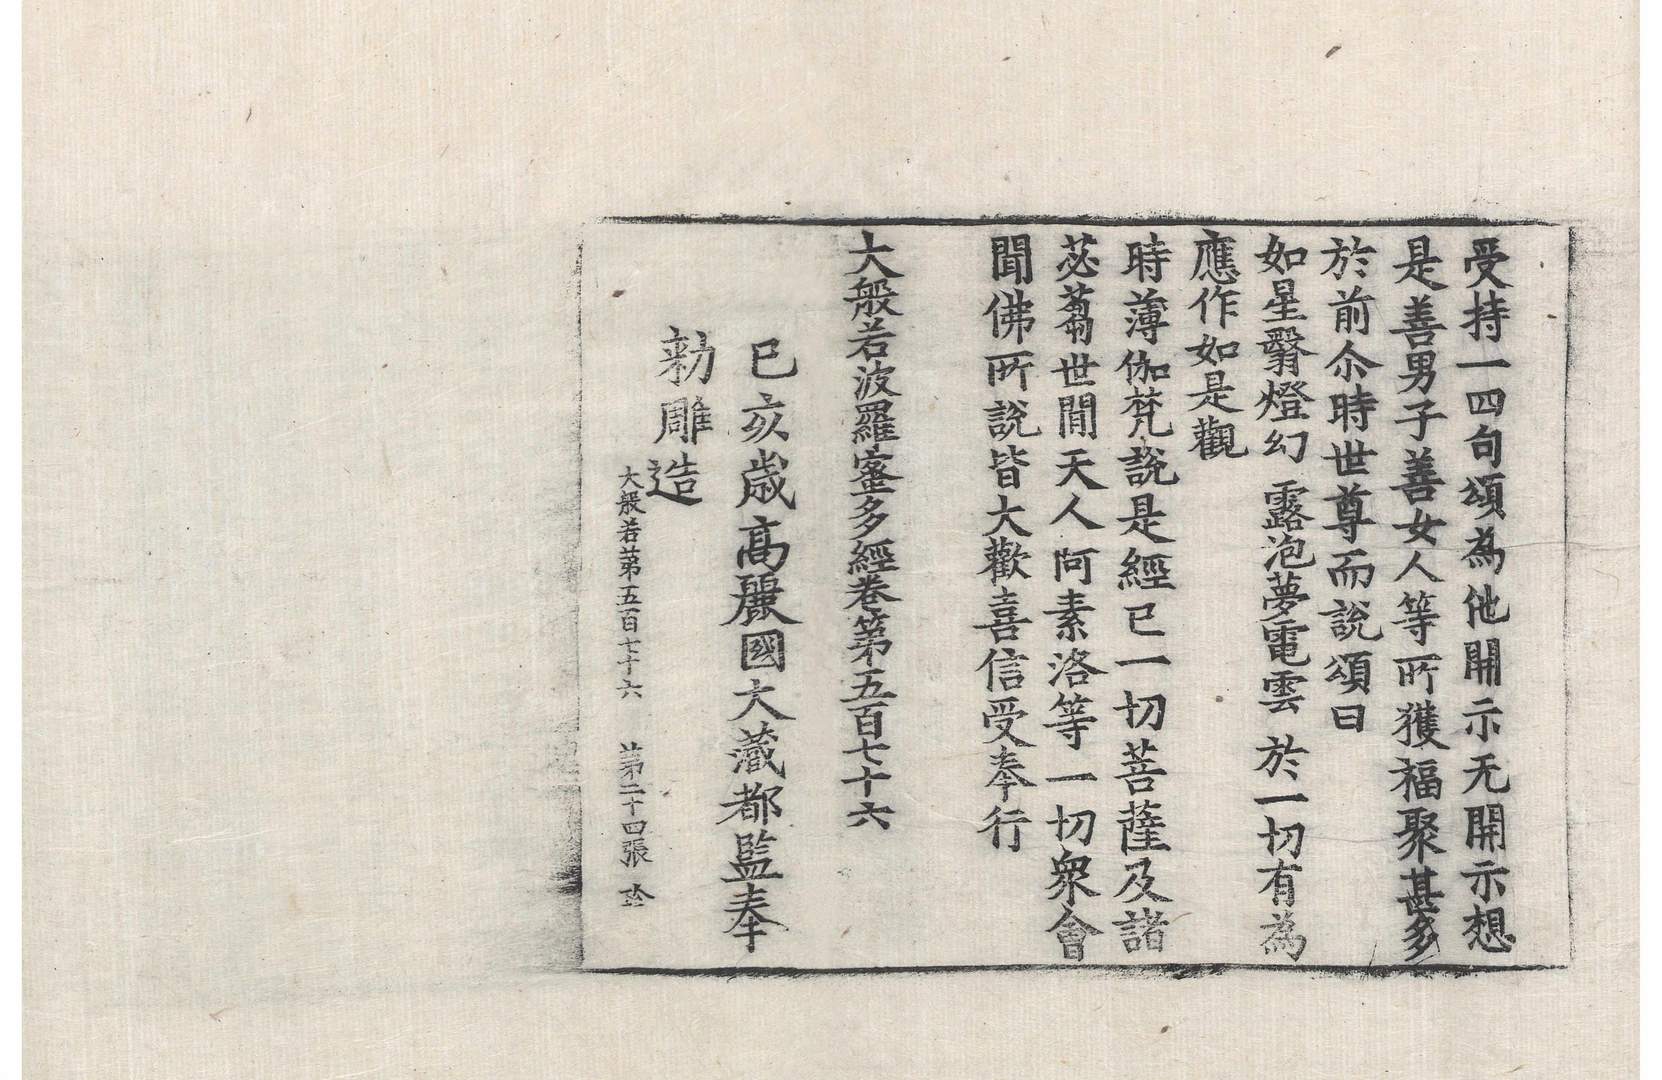 受持一四句頌為他開示无開示想
是善男子善女人等所獲福聚甚多
於前尒時世尊而說頌曰
如星翳燈幻 露泡夢電雲 於一切有為
應作如是觀
時薄伽梵說是經已一切菩薩及諸
苾蒭世間天人阿素洛等一切衆會
聞佛所說皆大歡喜信受奉行
大般若波羅蜜多經卷第五百七十六
己亥歲高麗國大藏都監奉
勑雕造
大般若第五百七十六 第二十四張 珎